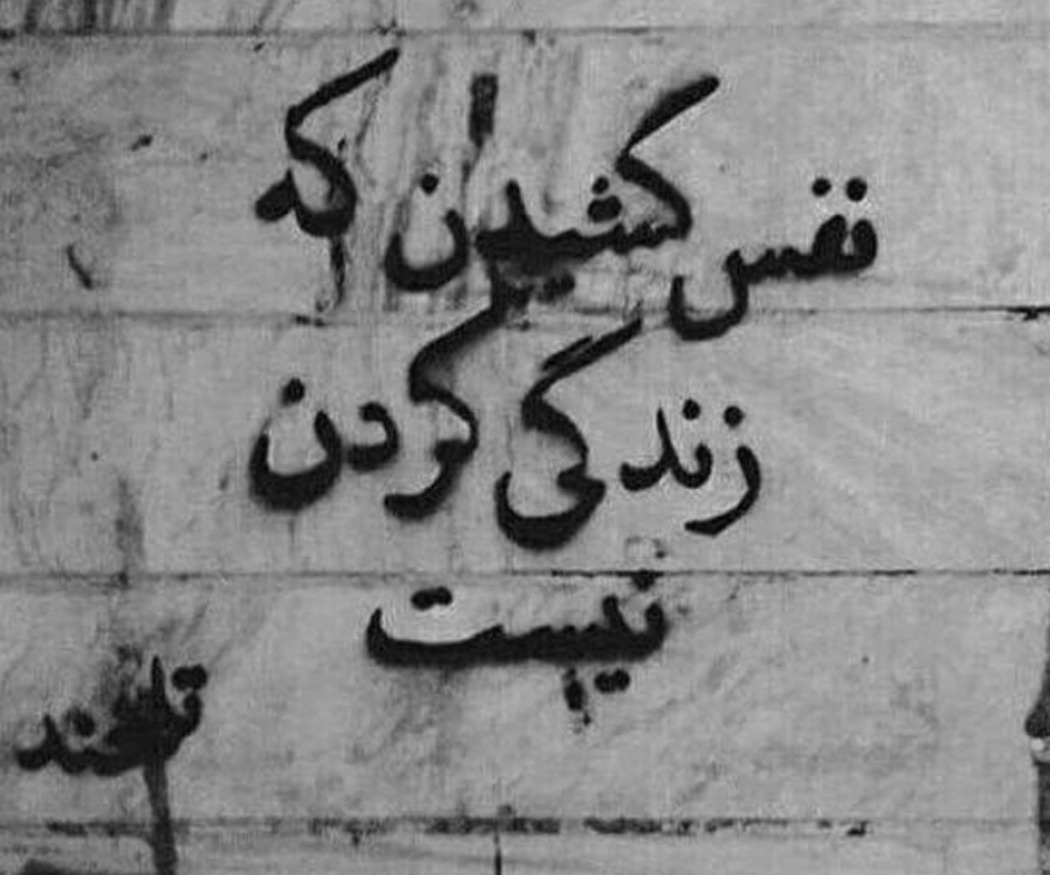 نفس کشیدن که
زندگی کردن
نیست